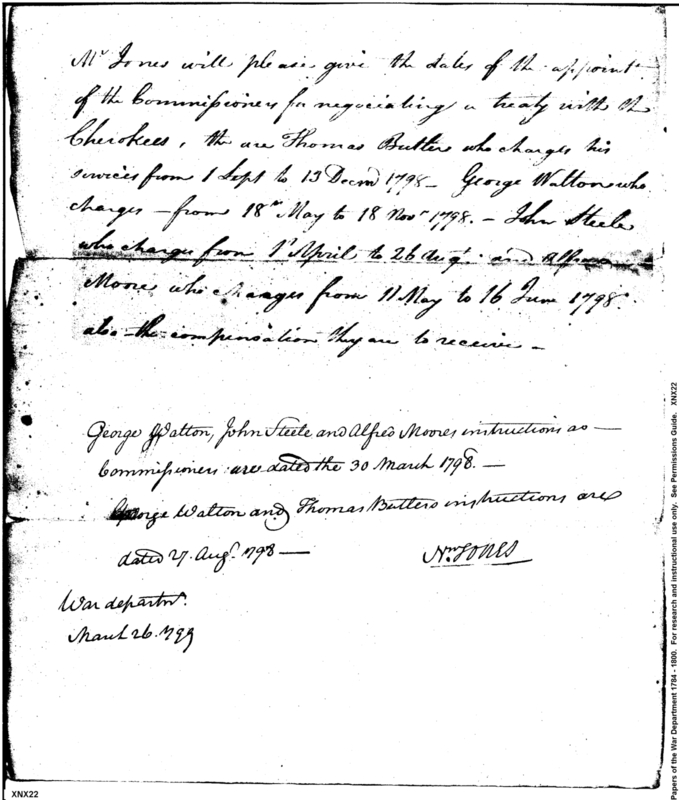 Mr Jones will please give the dates of the appointt
of the Commissioners for negociating a treaty with the
Cherokees, the are Thomas Butler who charges his
services from 1 Sept to 13 Decmr 1798 - George Walton who
charges - from 18th May to 18 Novr 1798. - John Steele
who charges from 1t April to 26 Augt. and Alfred
Moore who charges from 11 May to 16 June 1798.
also the compensation they are to receive -
George Walton, John Steele and Alfred Moores instructions as -
Commissioners are dated the 30 March 1798. -
George Walton and Thomas Butlers instructions are
dated 27. Augt. 1798 -
Wm JONES
War departmt.
March 26. 1799
XNX22
Papers of the War Department 1784 - 1800. For research and instructional use only. See Permissions Guide. XNX22